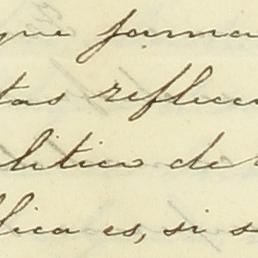 que forma
tas reflecc
litico de
lica es, si s